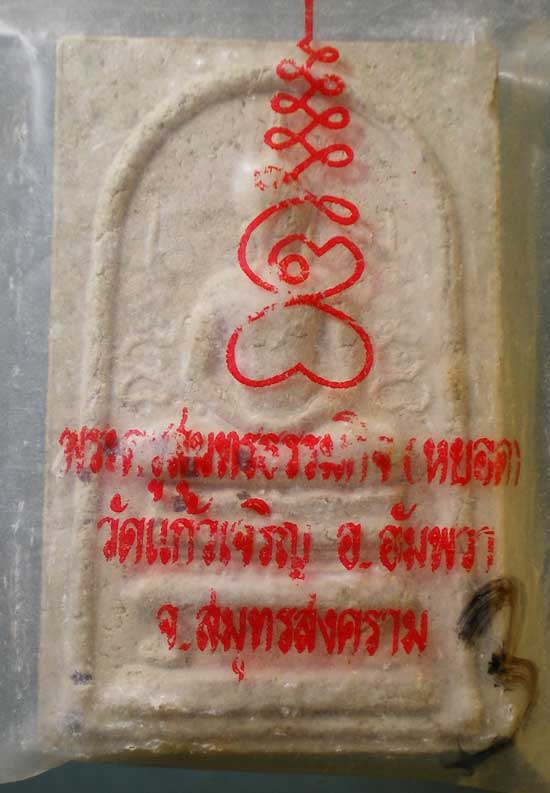 พระครูสุมทรธรรมกิจ (หยอด)
วัดแก้วเจริญ อ. อัมพวา
จ. สมุทรสงคราม